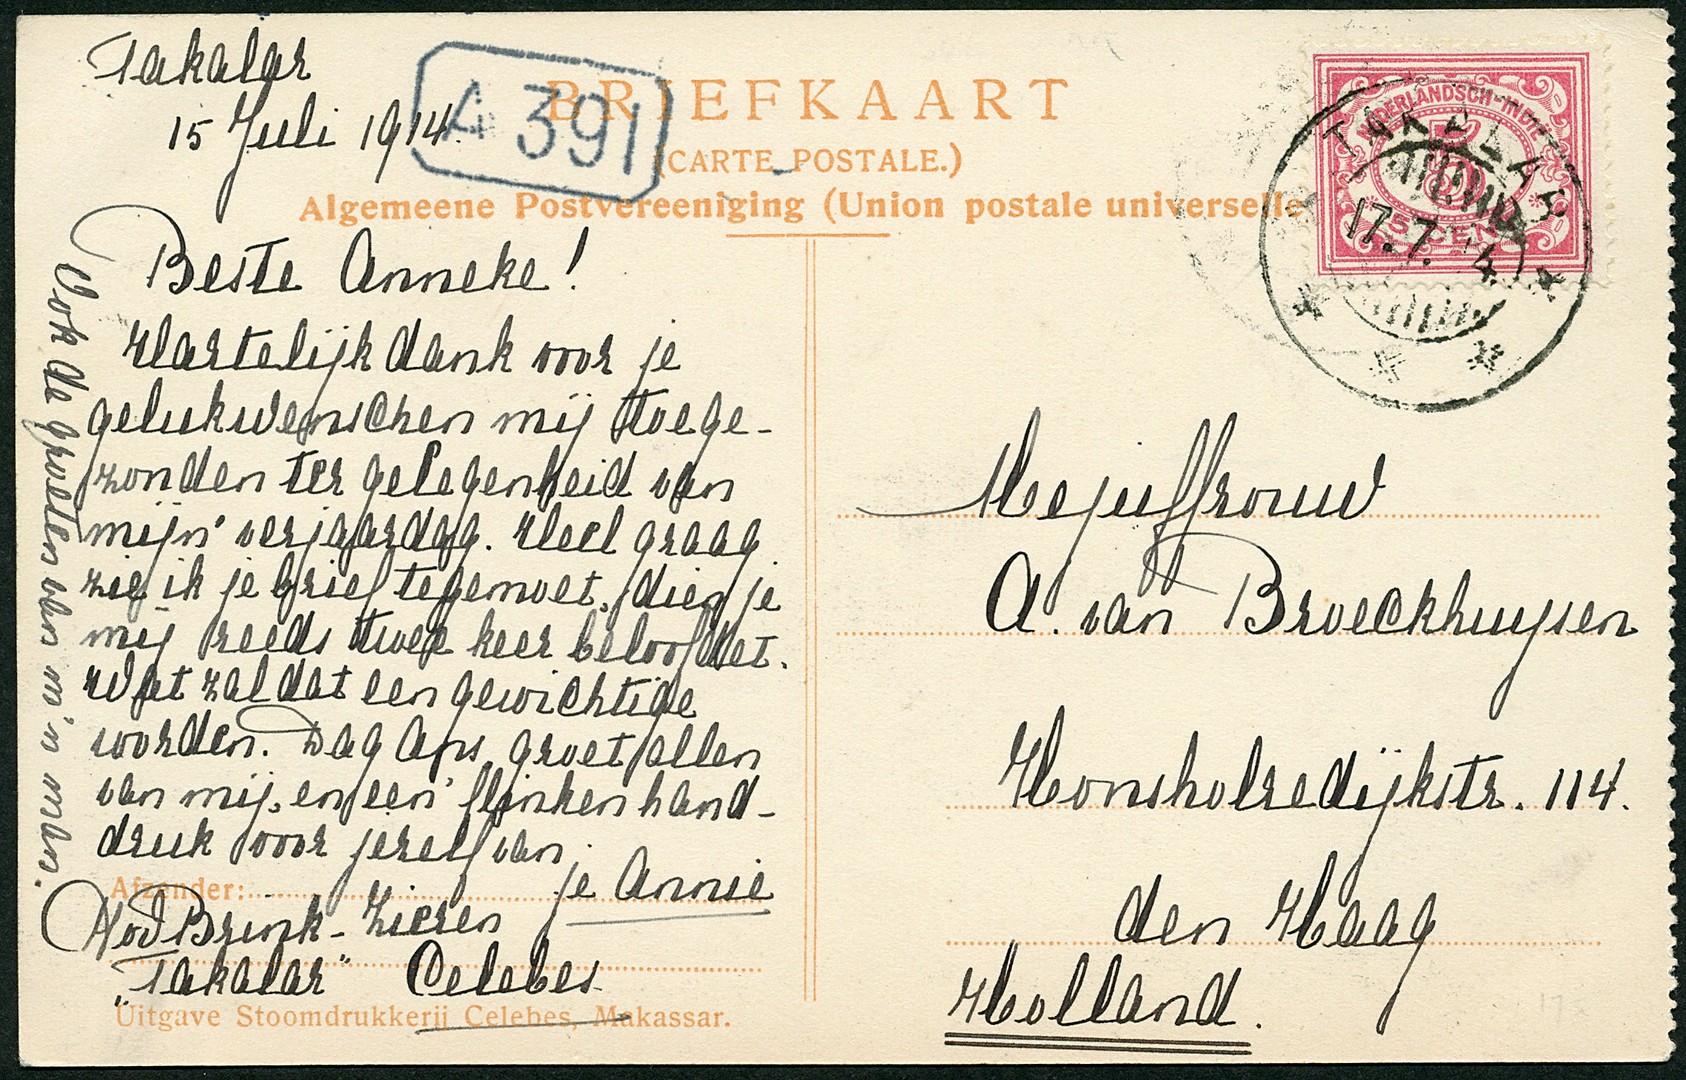 Takalar
15 Juli 1914.
A 391
BRIEFKAART
(CARTE POSTALE.)
Algemeene Postvereeniging (Union postale universelle
NEDERLANDSCH-INDIE
5
5 CENT
TAKALAR
17.7.14
Beste Anneke!
Hartelijk dank voor je
gelukwenschen mij toege-
zonden ter gelegenheid van
mijn verjaardag. Heel graag
zie ik je brief tegemoet, dien je
mij reeds twee keer beloofdet.
Wat zal dat een gewichtige
worden. Dag Ans, groet allen
van mij, en een flinken hand-
druk voor jezelf van
je Annie
Ook de groeten van m'n man.
Afzender:
v/d Brink-Zieren
"Takalar" Celebes
Uitgave Stoomdrukkerij Celebes, Makassar.
Mejuffrouw
A. van Broeckhuysen
Honsholredijkstr. 114.
den Haag
Holland.